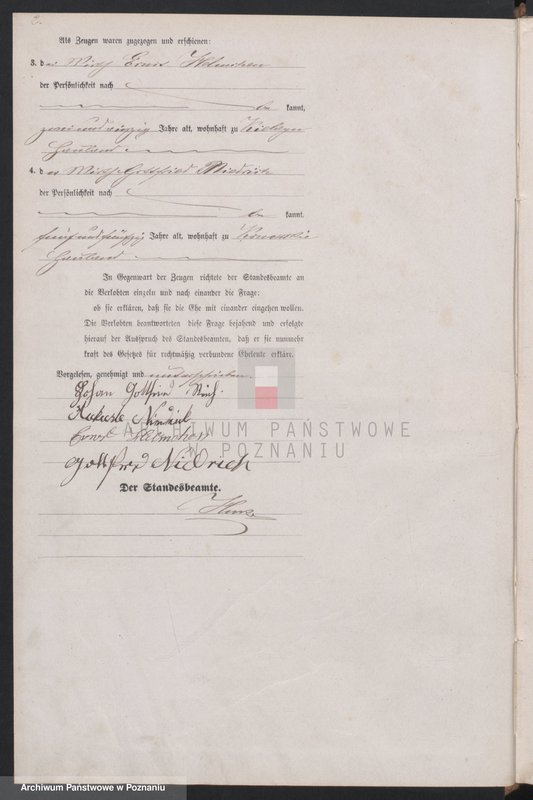 2.
Als Zeugen waren zugezogen und erschienen:
3. der Wirth Ernst
der Persönlichkeit nach
be kannt,
zweiundvierzig Jahre alt, wohnhaft zu
Hauland.
4. der Wirth Gottfried Niedrich
der Persönlichkeit nach
be kannt.
Jahre alt, wohnhaft zu
Hauland.
In Gegenwart der Zeugen richtete der Standesbeamte an
die Verlobten einzeln und nach einander die Frage:
ob sie erklären, daß sie die Ehe mit einander eingehen wollen.
Die Verlobten beantworteten diese Frage bejahend und erfolgte
hierauf der Ausspruch des Standesbeamten, daß er sie nunmehr
kraft des Gesetzes für rechtmäßig verbundene Eheleute erkläre.
Vorgelesen, genehmigt und unterschrieben.
Johan Gottfried
Auguste
Ernst
Gottfried Nidrich
ARCHIWUM PAŃSTWOWE
W POZNANIU
Der Standesbeamte.
Archiwum Państwowe w Poznaniu